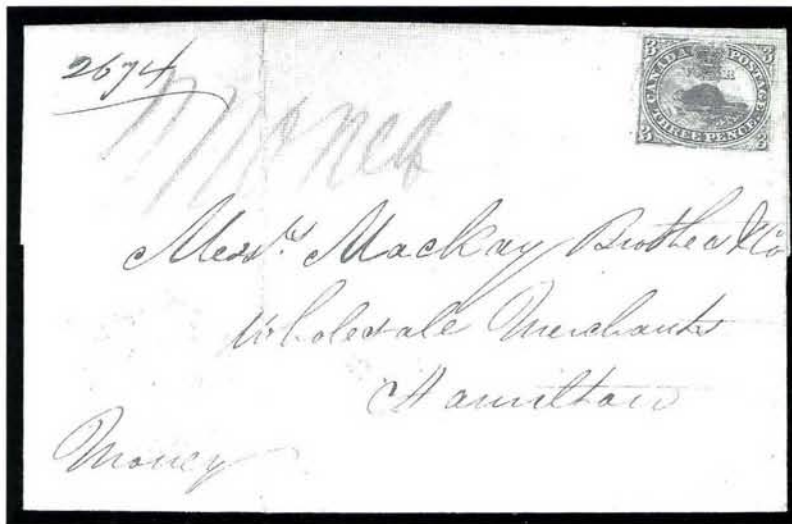 2674
Money
3 CANADA POSTAGE 3
3 THREE PENCE 3
Messrs. Mackay Brother & Co
Wholesale Merchants
Hamilton
Money